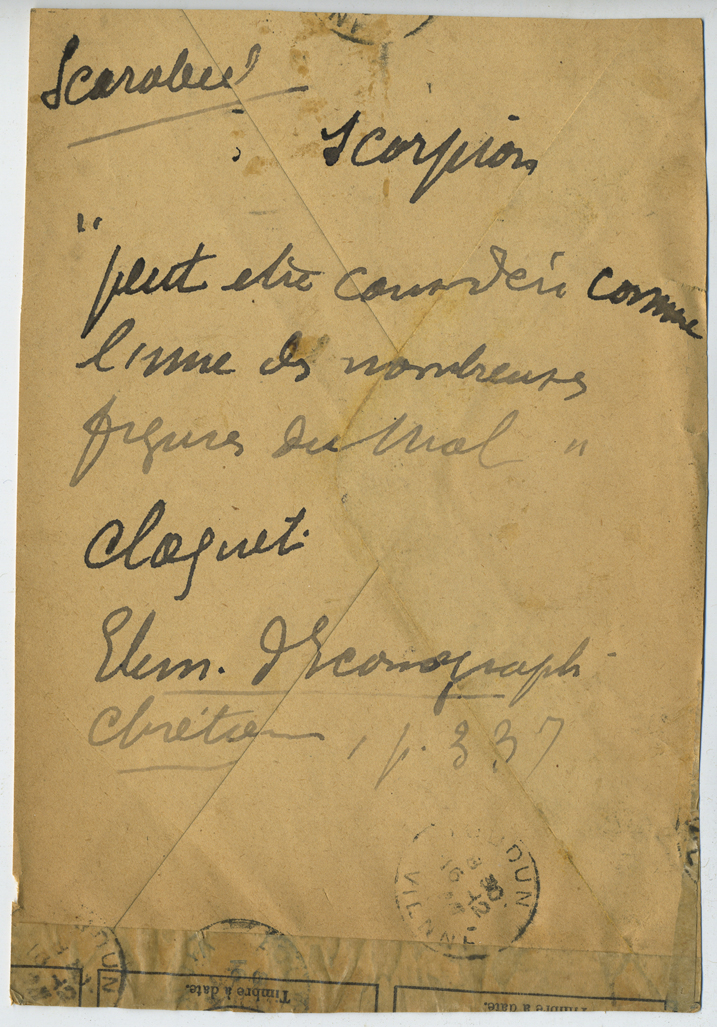 Scarabée
: Scorpion
"peut etre considéré comme
l'une des nombreuses
figures du Mal "
Cloquet
Elem. d'Iconographi
Chrétienn, p. 337
OUDUN
VIENNE
Timbre à date.
à date.